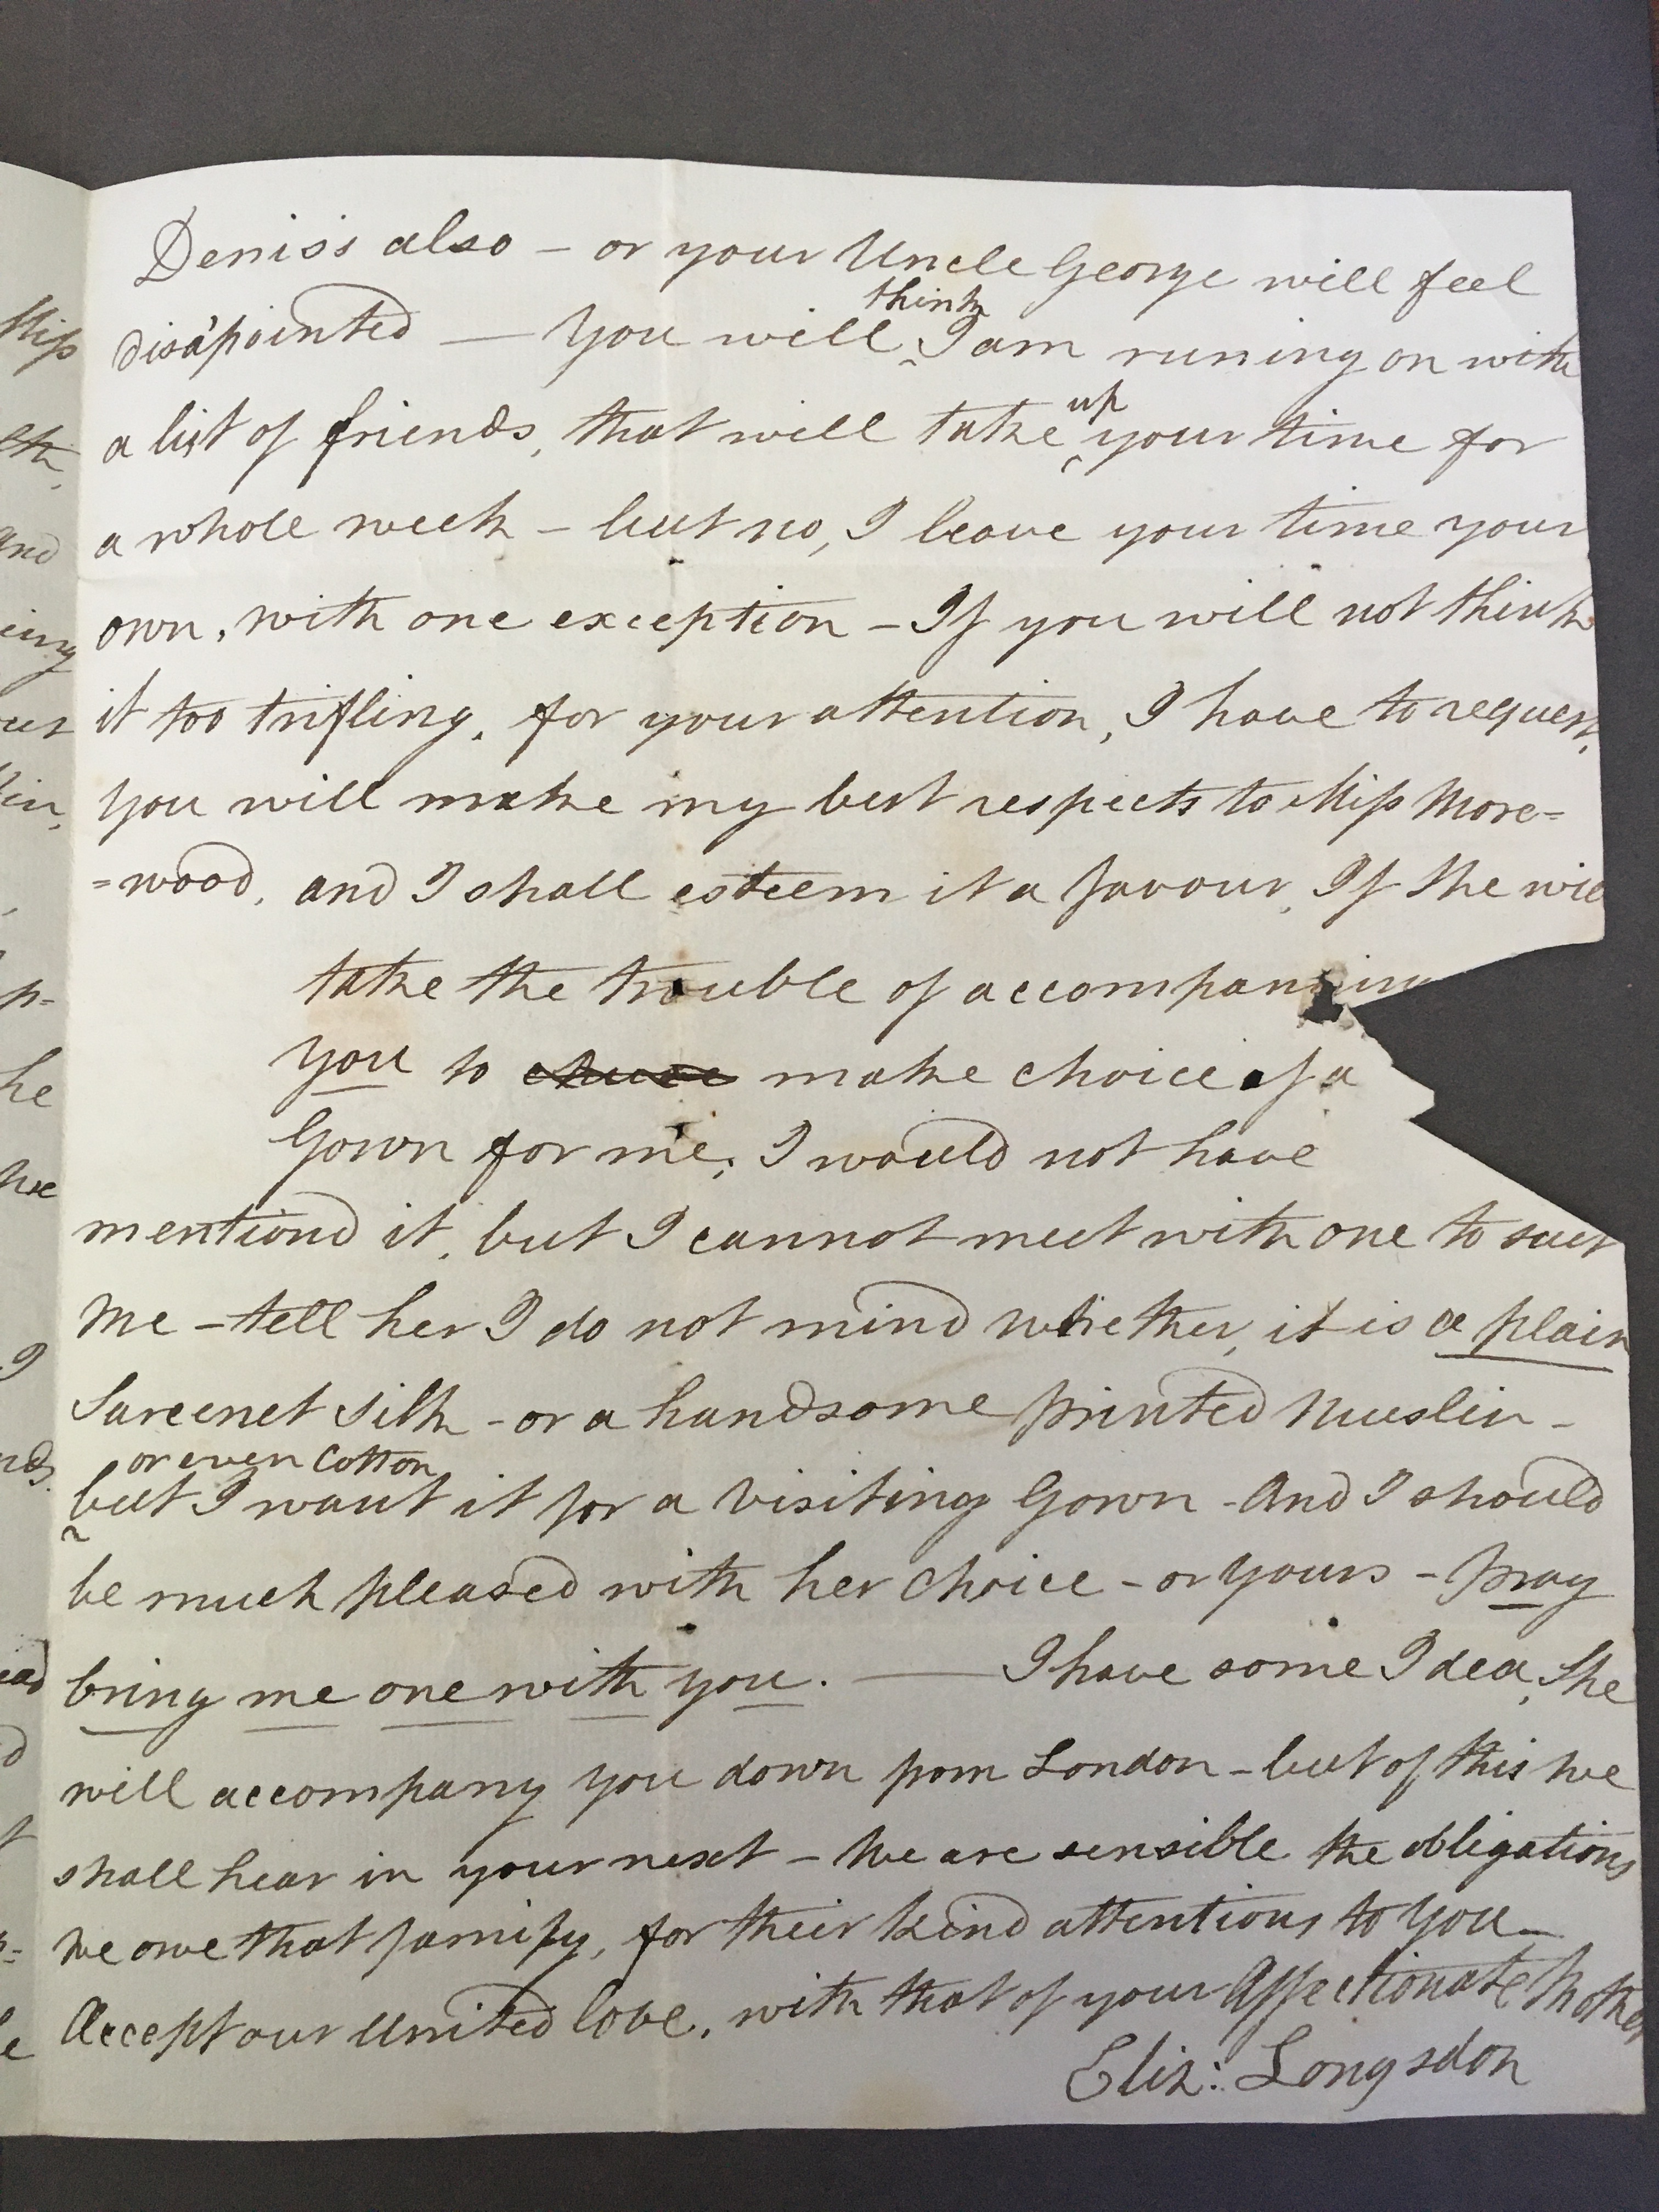 Denis's also – or your Uncle George will feel
disapointed — You will think I am runing on with
a list of friends, that will take up your time for
a whole week – but no, I leave your time your
own, with one exception – If you will not think
it too trifling, for your attention, I have to request,
you will make my best respects to Miss More=
=wood, and I shall esteem it a favour, If She will
take the trouble of accompaning
you to chuse make choice of a
Gown for me; I would not have
mentiond it, but I cannot meet with one to suit
Me – tell her I do not mind whether, it is a plain
Sarcenet Silk – or a handsome printed Muslin –
or even Cotton
but I want it for a Visiting Gown – And I should
be much pleased with her Choice – or Yours – pray
bring me one with you. — I have some Idea, She
will accompany you down from London – but of this we
shall hear in your next – We are sensible the obligations
we owe that family, for their kind attentions to you –
Accept our United love, with that of your Affectionate Mother
Eliz: Longsdon
Miss
and
ing
he
we
I